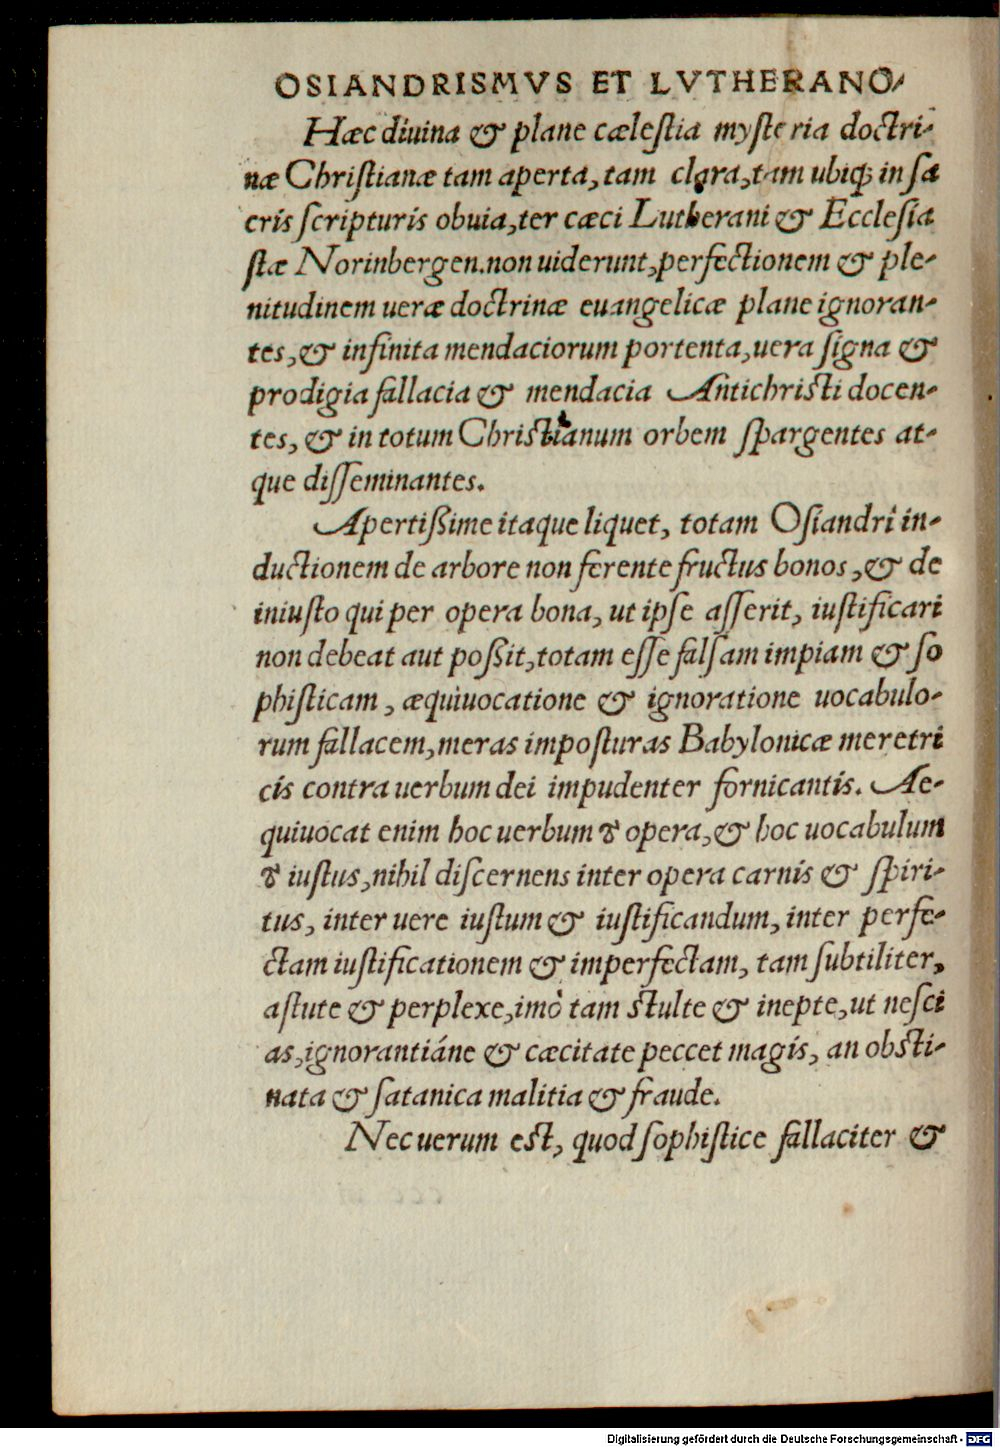 OSIANDRISMVS ET LVTHERANO-
Hæc diuina & plane cælestia mysteria doctri-
næ Christianæ tam aperta, tam clara, tam ubiq; in sa
cris scripturis obuia, ter cæci Lutherani & Ecclesia
stæ Norinbergen. non uiderunt, perfectionem & ple-
nitudinem ueræ doctrinæ euangelicæ plane ignoran-
tes, & infinita mendaciorum portenta, uera signa &
prodigia fallacia & mendacia Antichristi docen-
tes, & in totum Christianum orbem spargentes at-
que disseminantes.
Apertißime itaque liquet, totam Osiandri in-
ductionem de arbore non ferente fructus bonos, & de
iniusto qui per opera bona, ut ipse asserit, iustificari
non debeat aut poßit, totam esse falsam impiam & so
phisticam, æquiuocatione & ignoratione uocabulo-
rum fallacem, meras imposturas Babylonicæ meretri
cis contra uerbum dei impudenter fornicantis. Ae-
quiuocat enim hoc uerbum ꝸ opera, & hoc uocabulum
ꝸ iustus, nihil discernens inter opera carnis & spiri-
tus, inter uere iustum & iustificandum, inter perfe-
ctam iustificationem & imperfectam, tam subtiliter,
astute & perplexe, imò tam stulte & inepte, ut nesci
as, ignorantiáne & cæcitate peccet magis, an obsti-
nata & satanica malitia & fraude.
Nec uerum est, quod sophistice fallaciter &
Digitalisierung gefördert durch die Deutsche Forschungsgemeinschaft - DFG